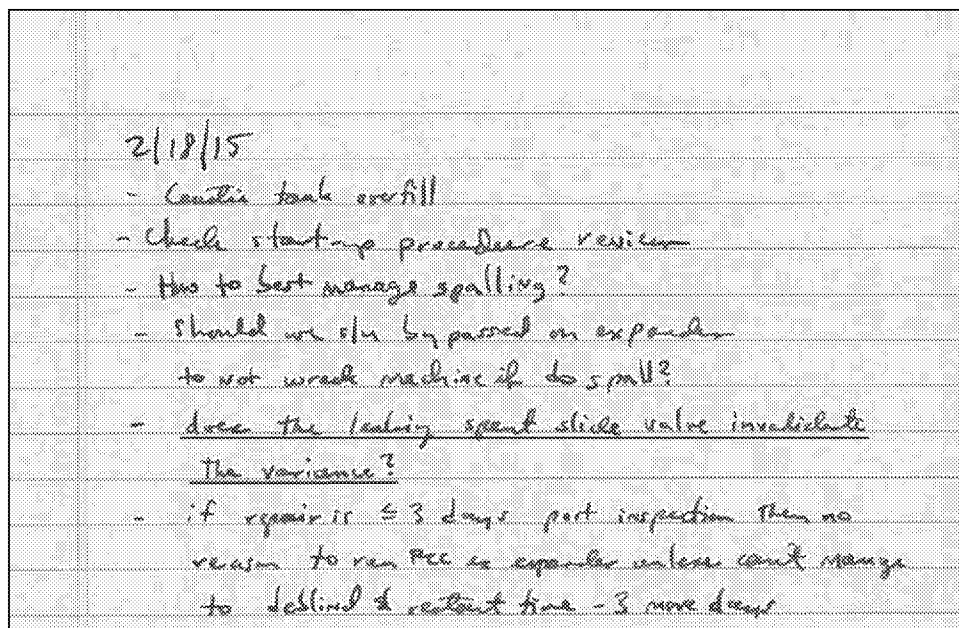 2/18/15
- Caustic tank overfill
- Check start-up procedure review
- How to best manage spalling?
- should we s/u bypassed on expander
to not wreck machine if do spall?
- does the leaking spent slide valve invalidate
the variance?
- if repair is ≤ 3 days post inspection then no
reason to run FCC ex expander unless can't manage
to deblind & restart time - 3 more days